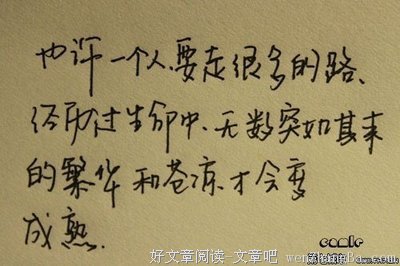 也许一个人、要走很多的路、
经历过生命中、无数突如其来
的繁华和苍凉.才会变
成熟.
comic
好文章阅读-文章吧